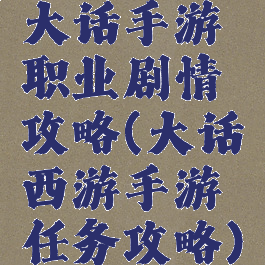 大话手游
职业剧情
攻略(大话
西游手游
任务攻略)